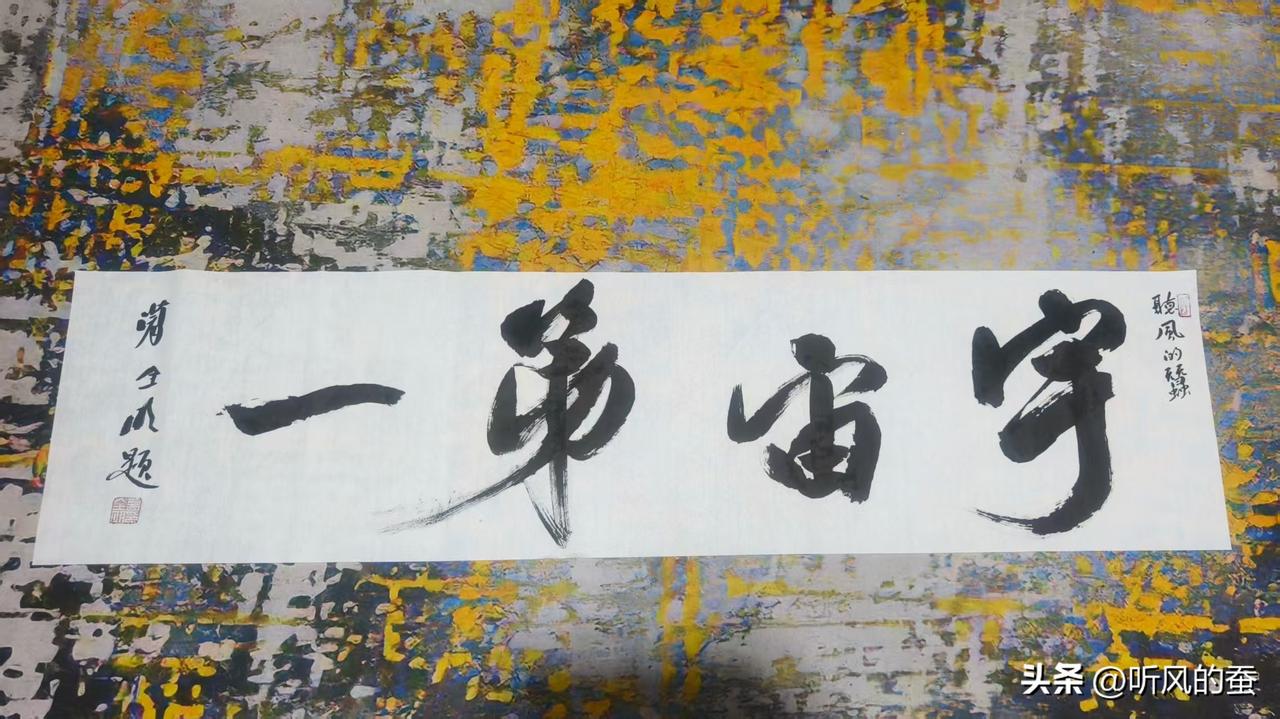 聽風的蠶
宇宙第一
題
头条 @听风的蚕